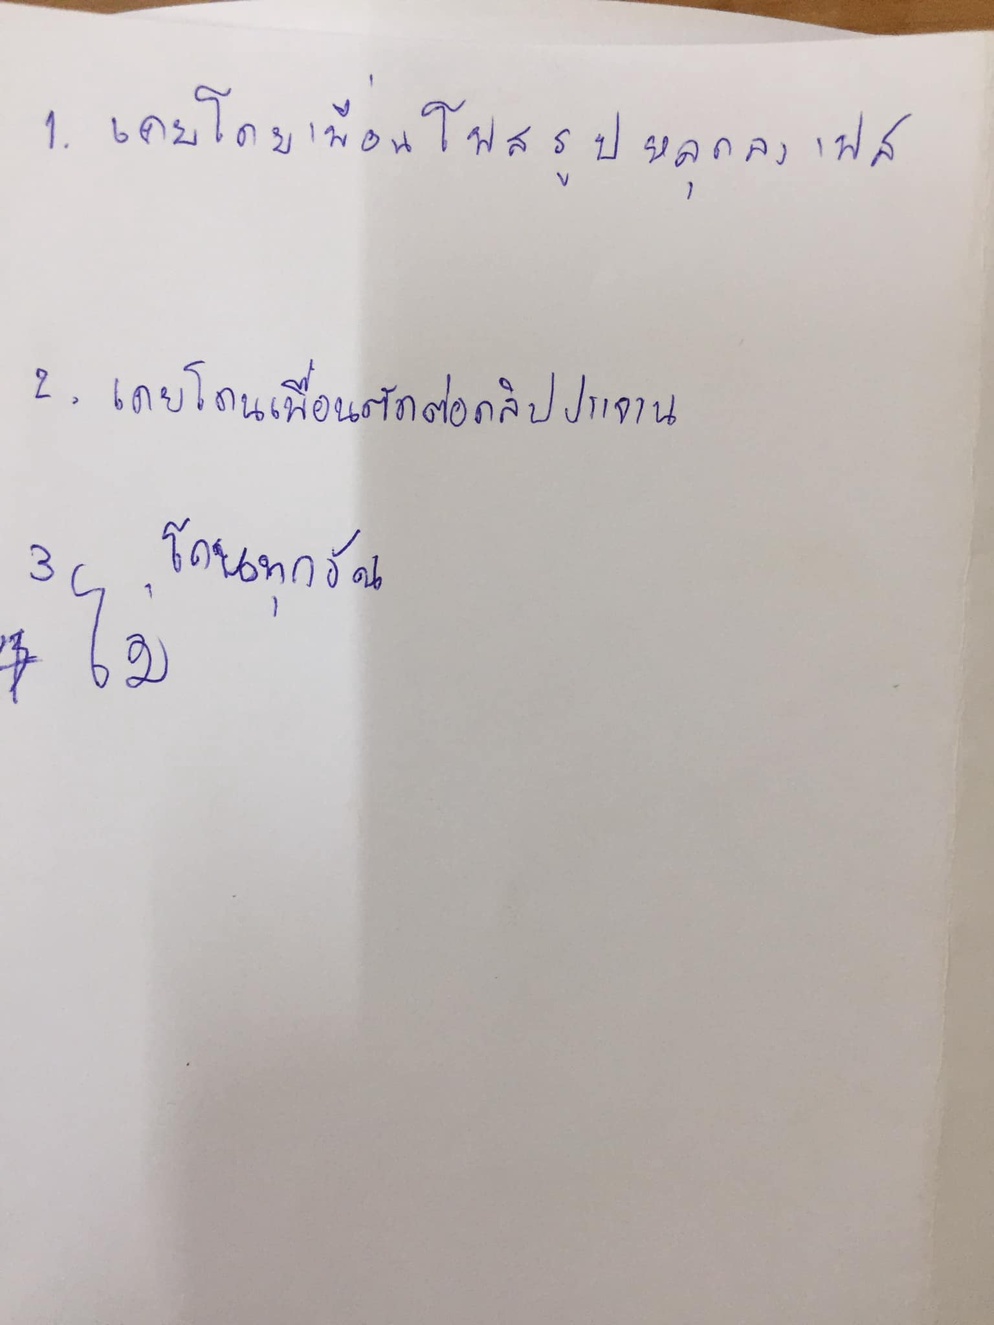 1. เคยโดยเพื่อนโพสรูปหลุดลงเฟส
2. เคยโดนเพื่อนตัดต่อคลิปประจาน
3. โดนทุกวัน
ไม